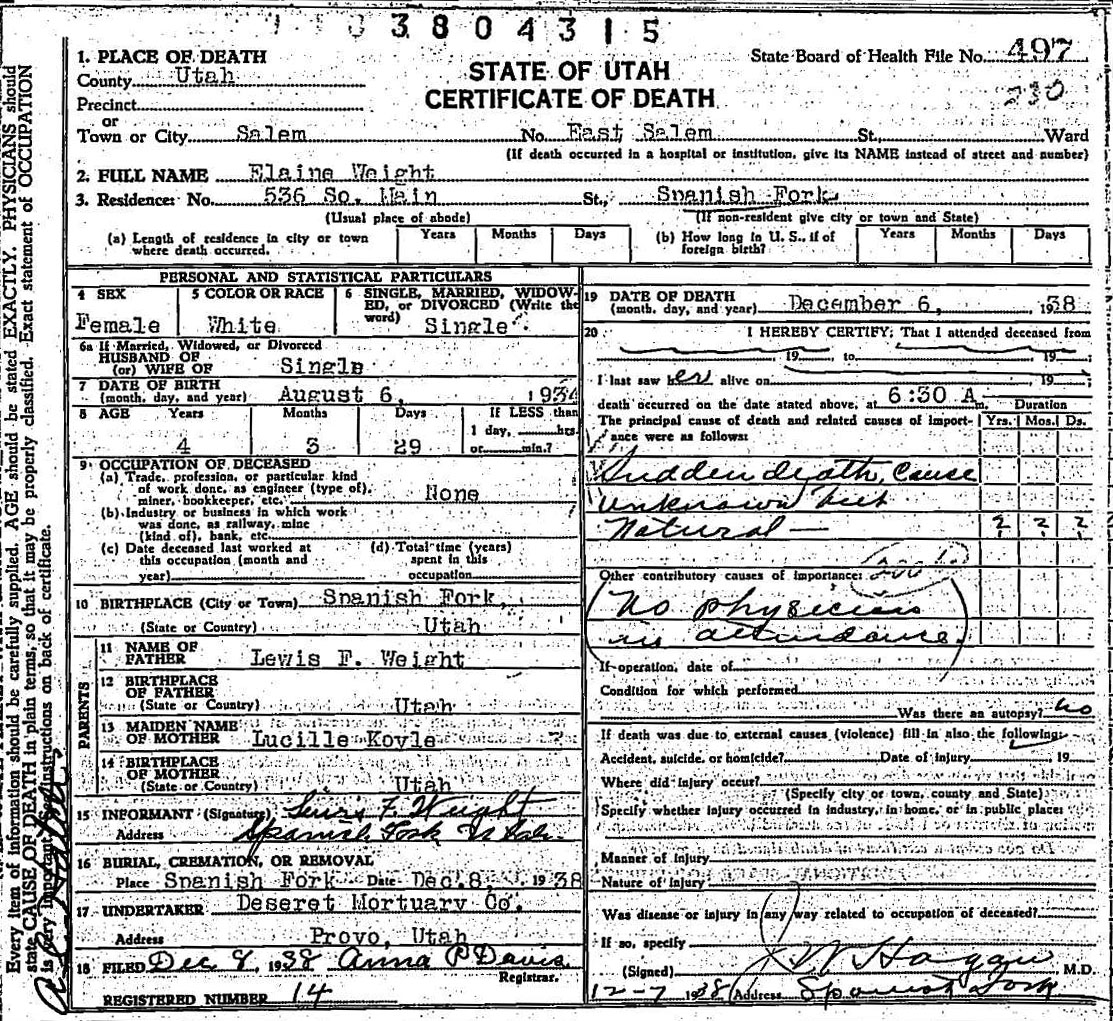 3 8 0 4 3 1 5
1. PLACE OF DEATH
County Utah
State Board of Health File No. 497
STATE OF UTAH
CERTIFICATE OF DEATH
230
Precinct
or
Town or City Salem No. East Salem St. Ward
(If death occurred in a hospital or institution, give its NAME instead of street and number)
2. FULL NAME Elaine Weight
3. Residence: No. 536 So. Main St., Spanish Fork
(Usual place of abode) (If non-resident give city or town and State)
(a) Length of residence in city or town where death occurred. Years Months Days (b) How long in U. S., if of foreign birth? Years Months Days
PERSONAL AND STATISTICAL PARTICULARS
4 SEX Female
5 COLOR OR RACE White
6 SINGLE, MARRIED, WIDOWED, or DIVORCED (Write the word) Single
6a If Married, Widowed, or Divorced
HUSBAND OF
(or) WIFE OF Single
7 DATE OF BIRTH
(month, day, and year) August 6, 1934
8 AGE Years Months Days If LESS than
1 day, hrs.
4 3 29 or min.?
9 OCCUPATION OF DECEASED
(a) Trade, profession, or particular kind
of work done, as engineer (type of),
miner, bookkeeper, etc. None
(b) Industry or business in which work
was done, as railway, mine
(kind of), bank, etc.
(c) Date deceased last worked at
this occupation (month and
year)
(d) Total time (years)
spent in this
occupation
10 BIRTHPLACE (City or Town) Spanish Fork,
(State or Country) Utah
PARENTS
11 NAME OF
FATHER Lewis F. Weight
12 BIRTHPLACE
OF FATHER
(State or Country) Utah
13 MAIDEN NAME
OF MOTHER Lucille Koyle
14 BIRTHPLACE
OF MOTHER
(State or Country) Utah
15 INFORMANT (Signature) Lewis F. Weight
Address Spanish Fork Utah
16 BURIAL, CREMATION, OR REMOVAL
Place Spanish Fork Date Dec. 8, 1938
17 UNDERTAKER Deseret Mortuary Co.
Address Provo, Utah
18 FILED Dec 8, 1938 Anna P Davis
Registrar.
REGISTERED NUMBER 14
19 DATE OF DEATH
(month, day, and year) December 6, 1938
20 I HEREBY CERTIFY: That I attended deceased from
19 , to 19 ;
I last saw her alive on 19 ;
death occurred on the date stated above, at 6:30 A m. Duration
The principal cause of death and related causes of importance were as follows: Yrs. Mos. Ds.
Sudden death, cause
unknown but
Natural — ? ? ?
Other contributory causes of importance:
(No physician
in attendance.)
If operation, date of
Condition for which performed
Was there an autopsy? no
If death was due to external causes (violence) fill in also the following:
Accident, suicide, or homicide? Date of injury 19
Where did injury occur?
(Specify city or town, county and State)
Specify whether injury occurred in industry, in home, or in public place:
Manner of injury
Nature of injury
Was disease or injury in any way related to occupation of deceased?
If so, specify
(Signed) M.D.
12-7 1938 (Address Spanish Fork
Every item of information should be carefully supplied. AGE should be stated EXACTLY. PHYSICIANS should
state CAUSE OF DEATH in plain terms, so that it may be properly classified. Exact statement of OCCUPATION
is very important. See instructions on back of certificate.